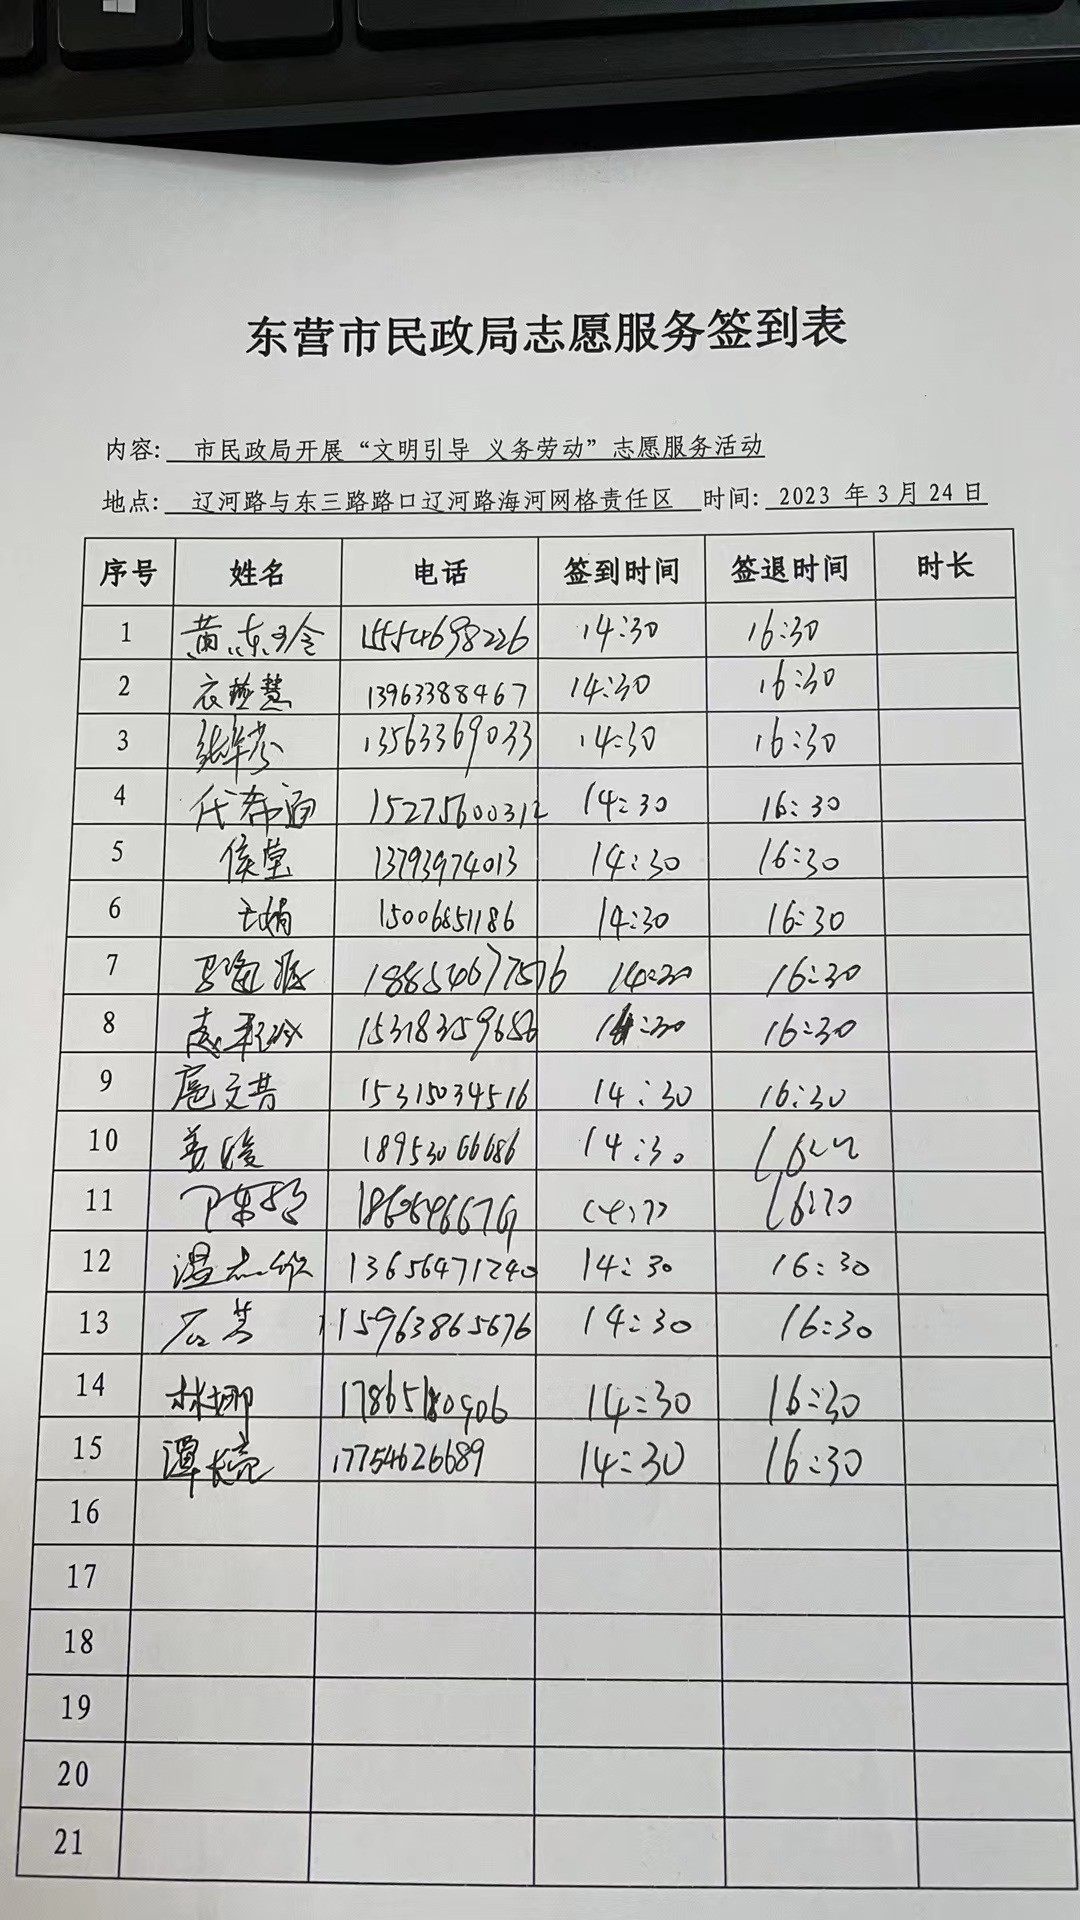 东营市民政局志愿服务签到表
内容: 市民政局开展“文明引导 义务劳动”志愿服务活动
地点: 辽河路与东三路路口辽河路海河网格责任区 时间: 2023 年 3 月 24 日
序号 姓名 电话 签到时间 签退时间 时长
1 黄东玲 15554698226 14:30 16:30
2 衣燕慧 13963388467 14:30 16:30
3 13563369033 14:30 16:30
4 代希涵 15275600312 14:30 16:30
5 侯莹 13793974013 14:30 16:30
6 王娟 15006851186 14:30 16:30
7 18854677576 14:30 16:30
8 15318359656 14:30 16:30
9 扈文昔 15315034516 14:30 16:30
10 姜俊 18953066686 14:30
11 16:30
12 13656471240 14:30 16:30
13 石菁 15963865676 14:30 16:30
14 林娜 14:30 16:30
15 谭长亮 17754626689 14:30 16:30
16
17
18
19
20
21